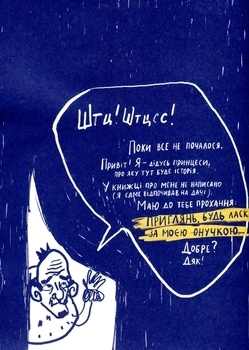 Штц! Штцсс!
Поки все не почалося.
Привіт! Я – дідусь принцеси,
про яку тут буде історія.
У книжці про мене не написано
(я саме відпочивав на дачі).
Маю до тебе прохання:
Приглянь, будь ласк
за моєю онучкою...
Добре?
Дяк!